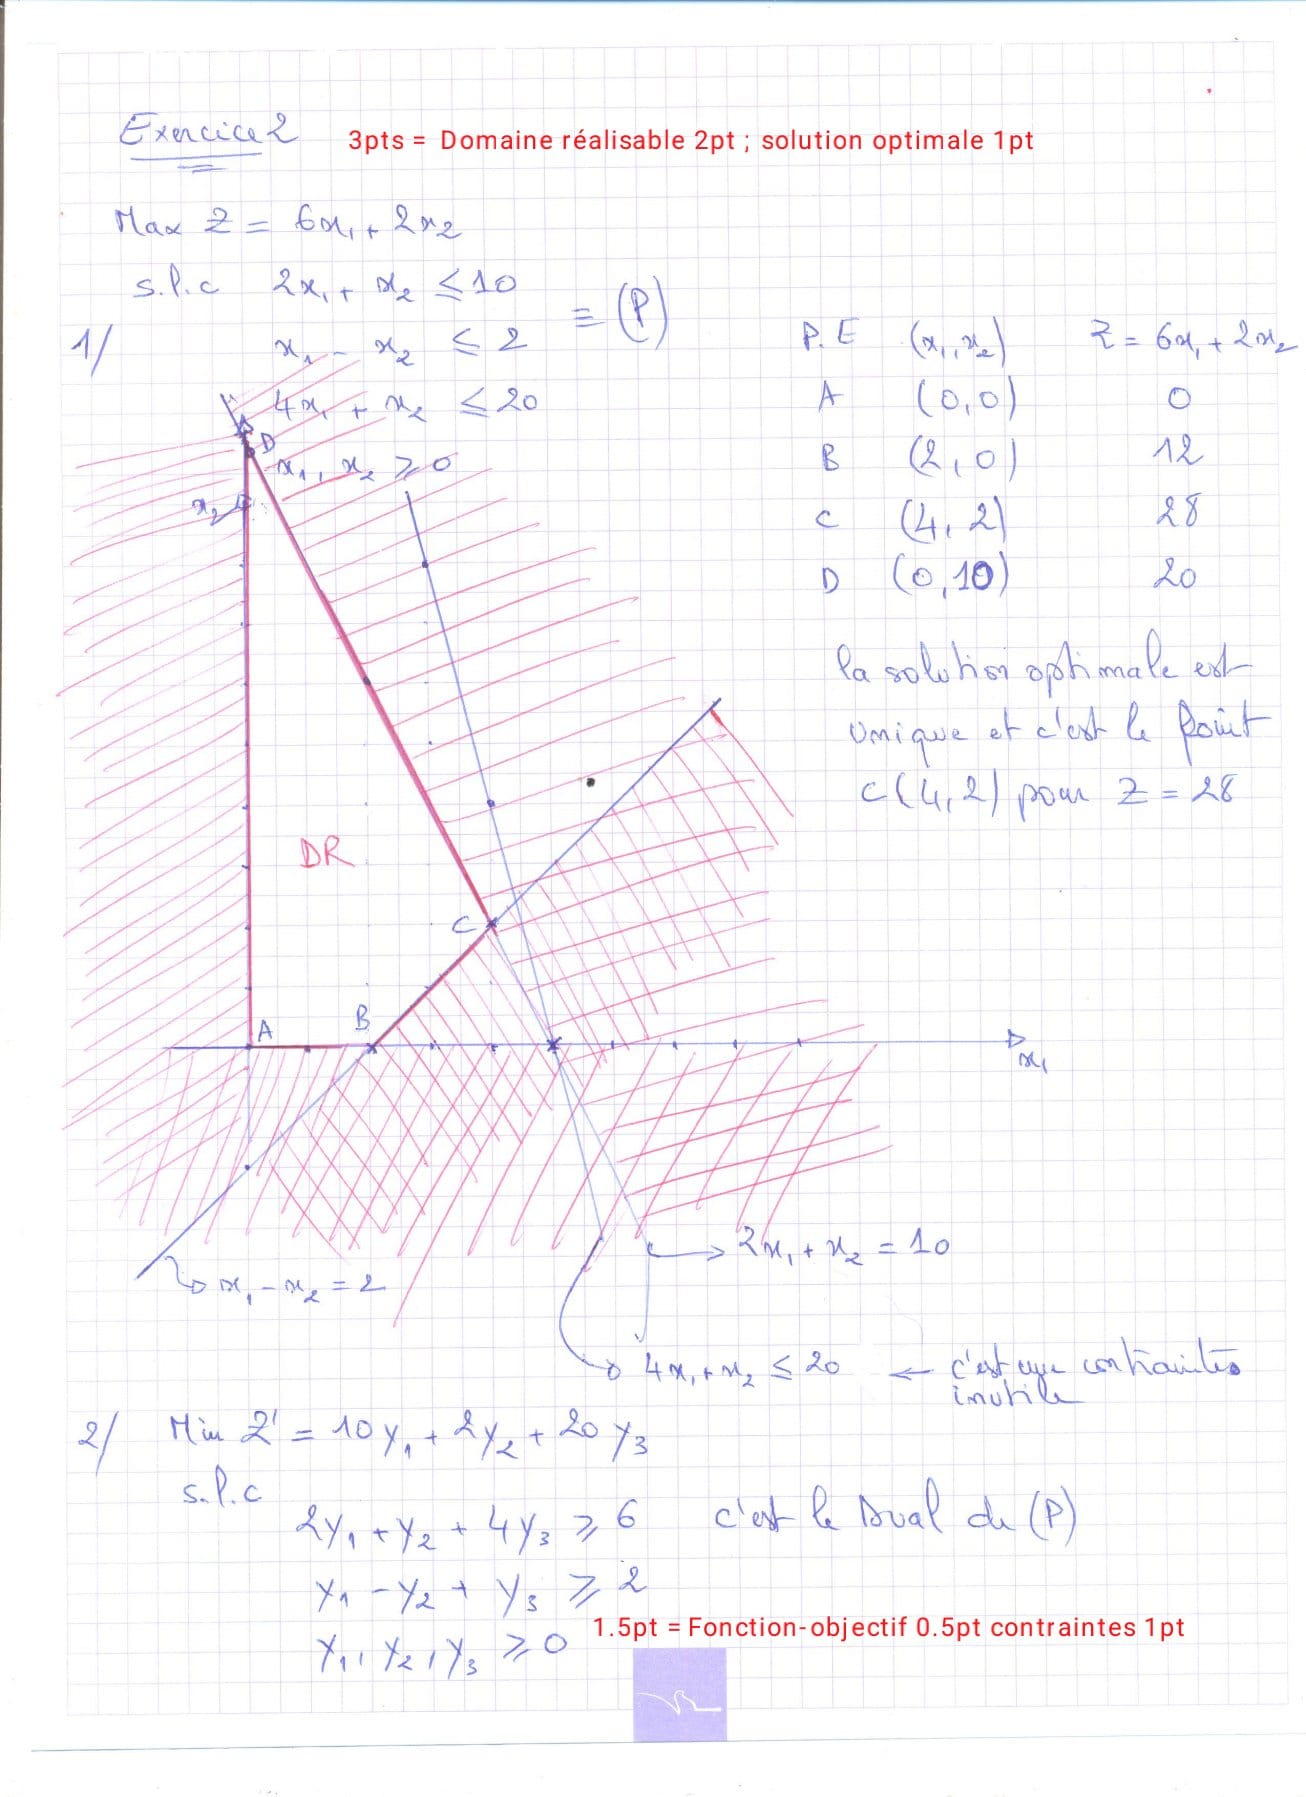 Exercice 2
3pts = Domaine réalisable 2pt ; solution optimale 1pt
Max Z = 6x₁ + 2x₂
s.l.c 2x₁ + x₂ ≤ 10
1/ x₁ - x₂ ≤ 2 ≡ (P)
4x₁ + x₂ ≤ 20
x₁, x₂ ≥ 0
P.E (x₁, x₂) Z = 6x₁ + 2x₂
A (0,0) 0
B (2,0) 12
C (4,2) 28
D (0,10) 20
la solution optimale est
unique et c'est le point
C(4,2) pour Z = 28
D
x₂
DR
C
A
B
x₁
2x₁ + x₂ = 10
x₁ - x₂ = 2
4x₁ + x₂ ≤ 20 ← c'est une contrainte
inutile
2/ Min Z' = 10y₁ + 2y₂ + 20y₃
s.l.c
2y₁ + y₂ + 4y₃ ≥ 6 c'est le Dual de (P)
y₁ - y₂ + y₃ ≥ 2
1.5pt = Fonction-objectif 0.5pt contraintes 1pt
y₁, y₂, y₃ ≥ 0